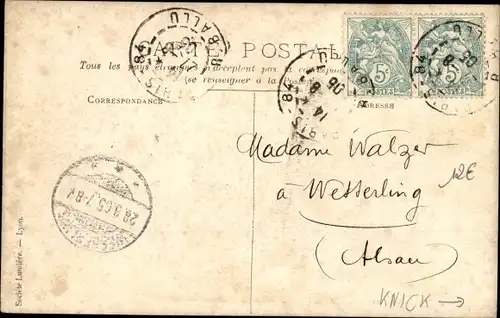 CARTE POSTALE
Tous les pays étrangers n'acceptent pas la correspondance
(se renseigner à la Poste)
CORRESPONDANCE
ADRESSE
5c
5c
POSTES
POSTES
PARIS 84
R. BALLU
PARIS 84
28.3.05.7-8V
WESSERLING
Madame Walzer
à Wesserling
(Alsace)
12€
KNICK →
Société Lumière. — Lyon.